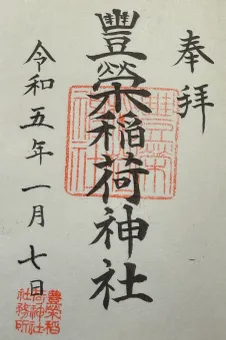 奉拝
豊榮稲荷神社
令和五年一月七日
豊榮稲
荷神社
社務所